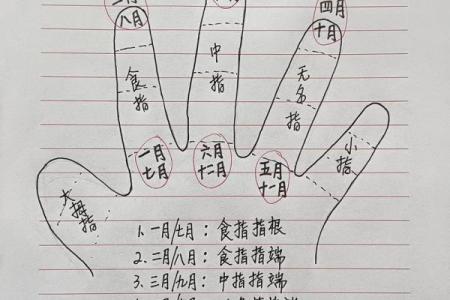 四月
八月
十月
食指
中指
无名指
小指
大拇指
一月
七月
六月
十二月
五月
十一月
1. 一月/七月：食指指根
2. 二月/八月：食指指端
3. 三月/九月：中指指端